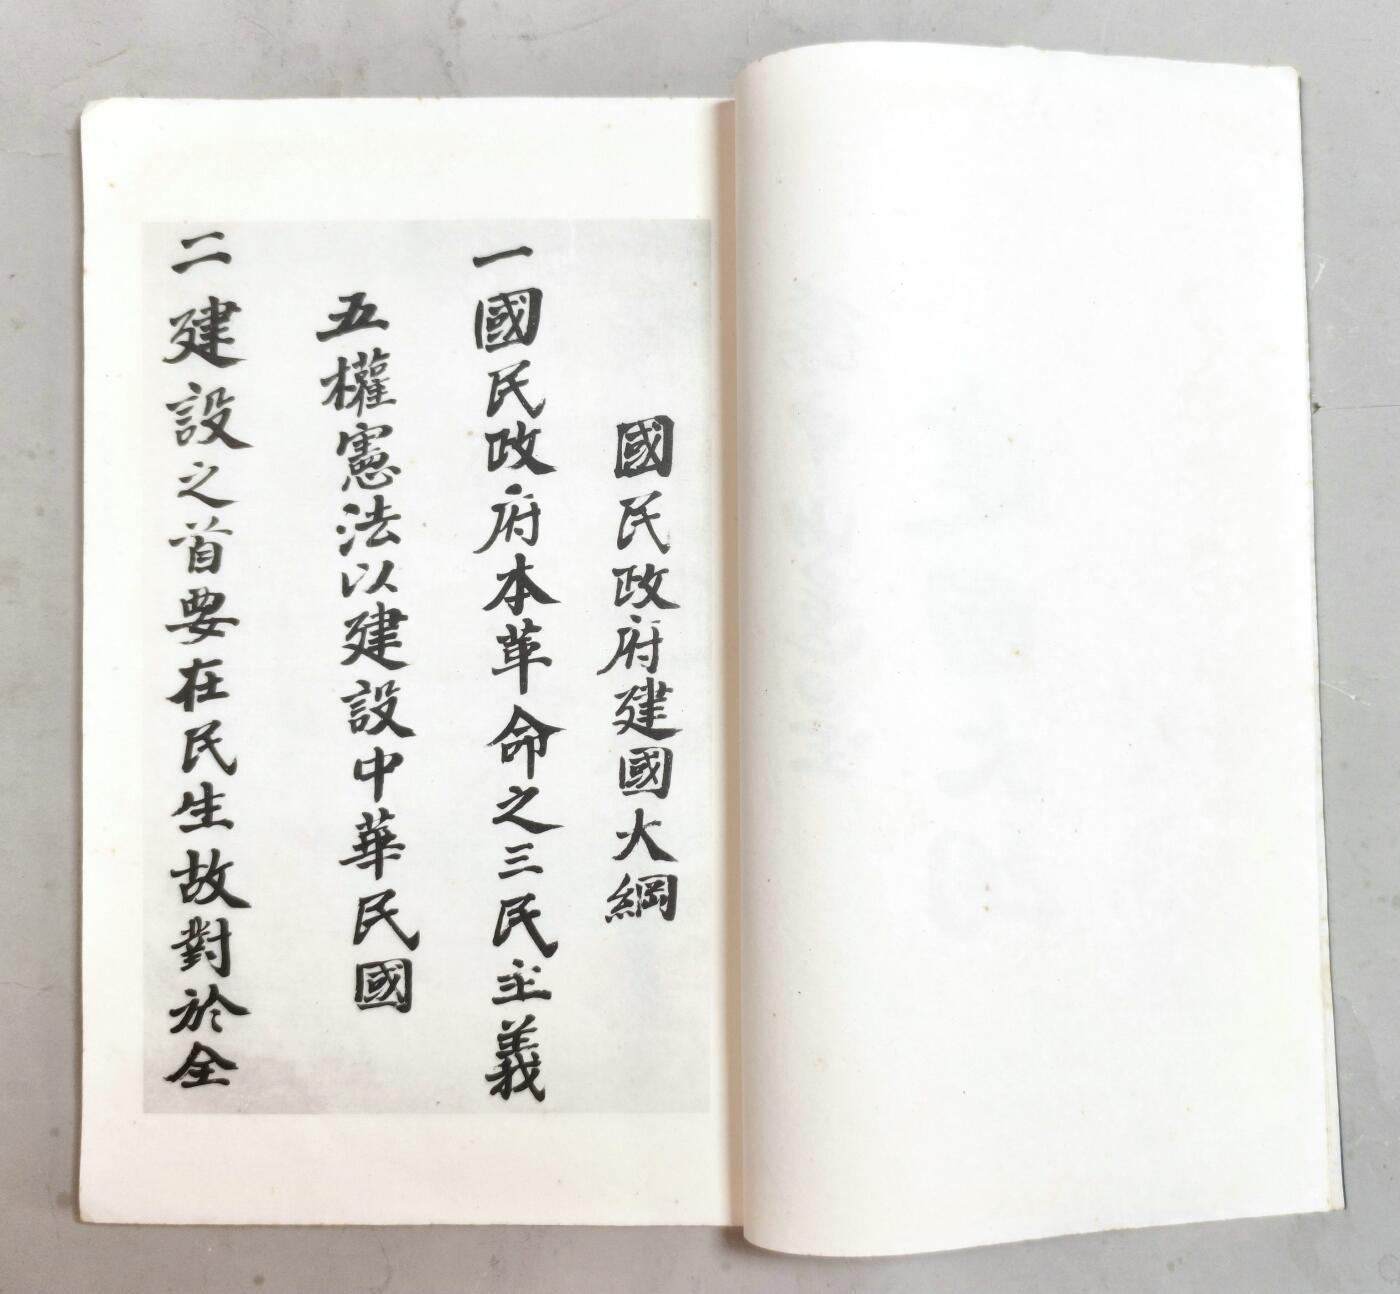 國民政府建國大綱
一國民政府本革命之三民主義
五權憲法以建設中華民國
二建設之首要在民生故對於全